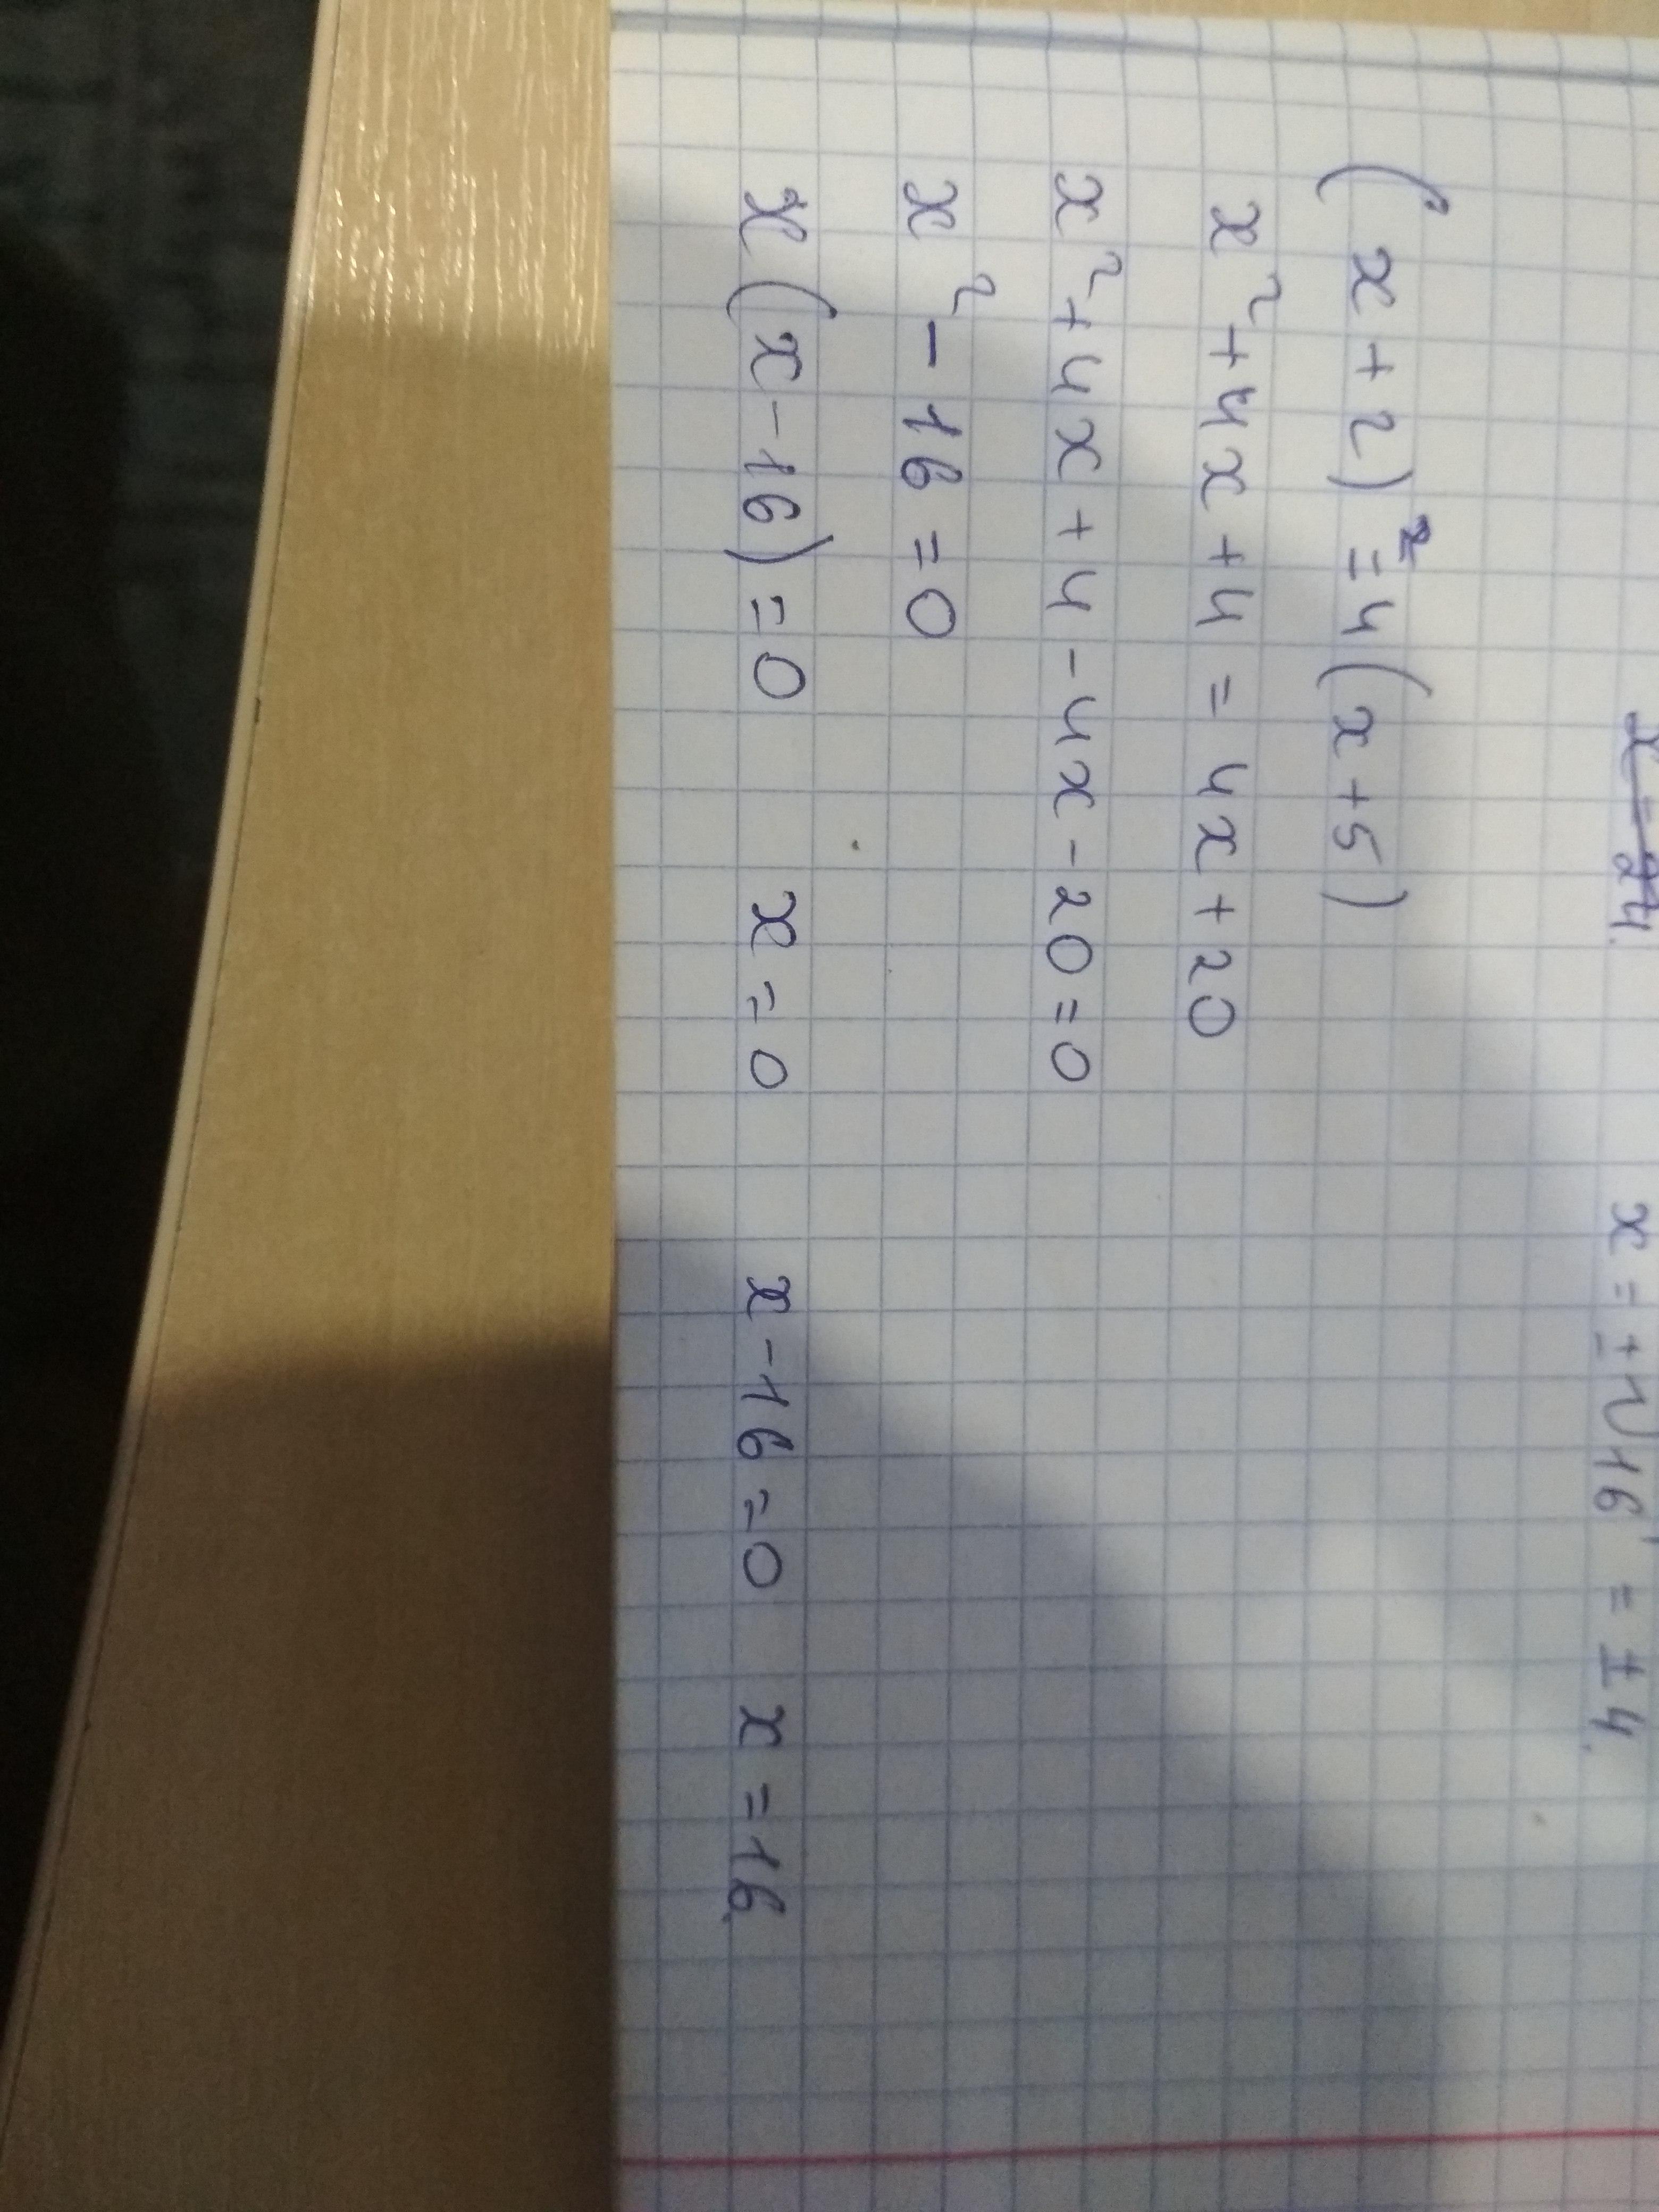 x = 24. x = ±√16 = ±4.
(x+2)² = 4(x+5)
x² + 4x + 4 = 4x + 20
x² + 4x + 4 - 4x - 20 = 0
x² - 16 = 0
x(x-16) = 0 x = 0 x - 16 = 0 x = 16.